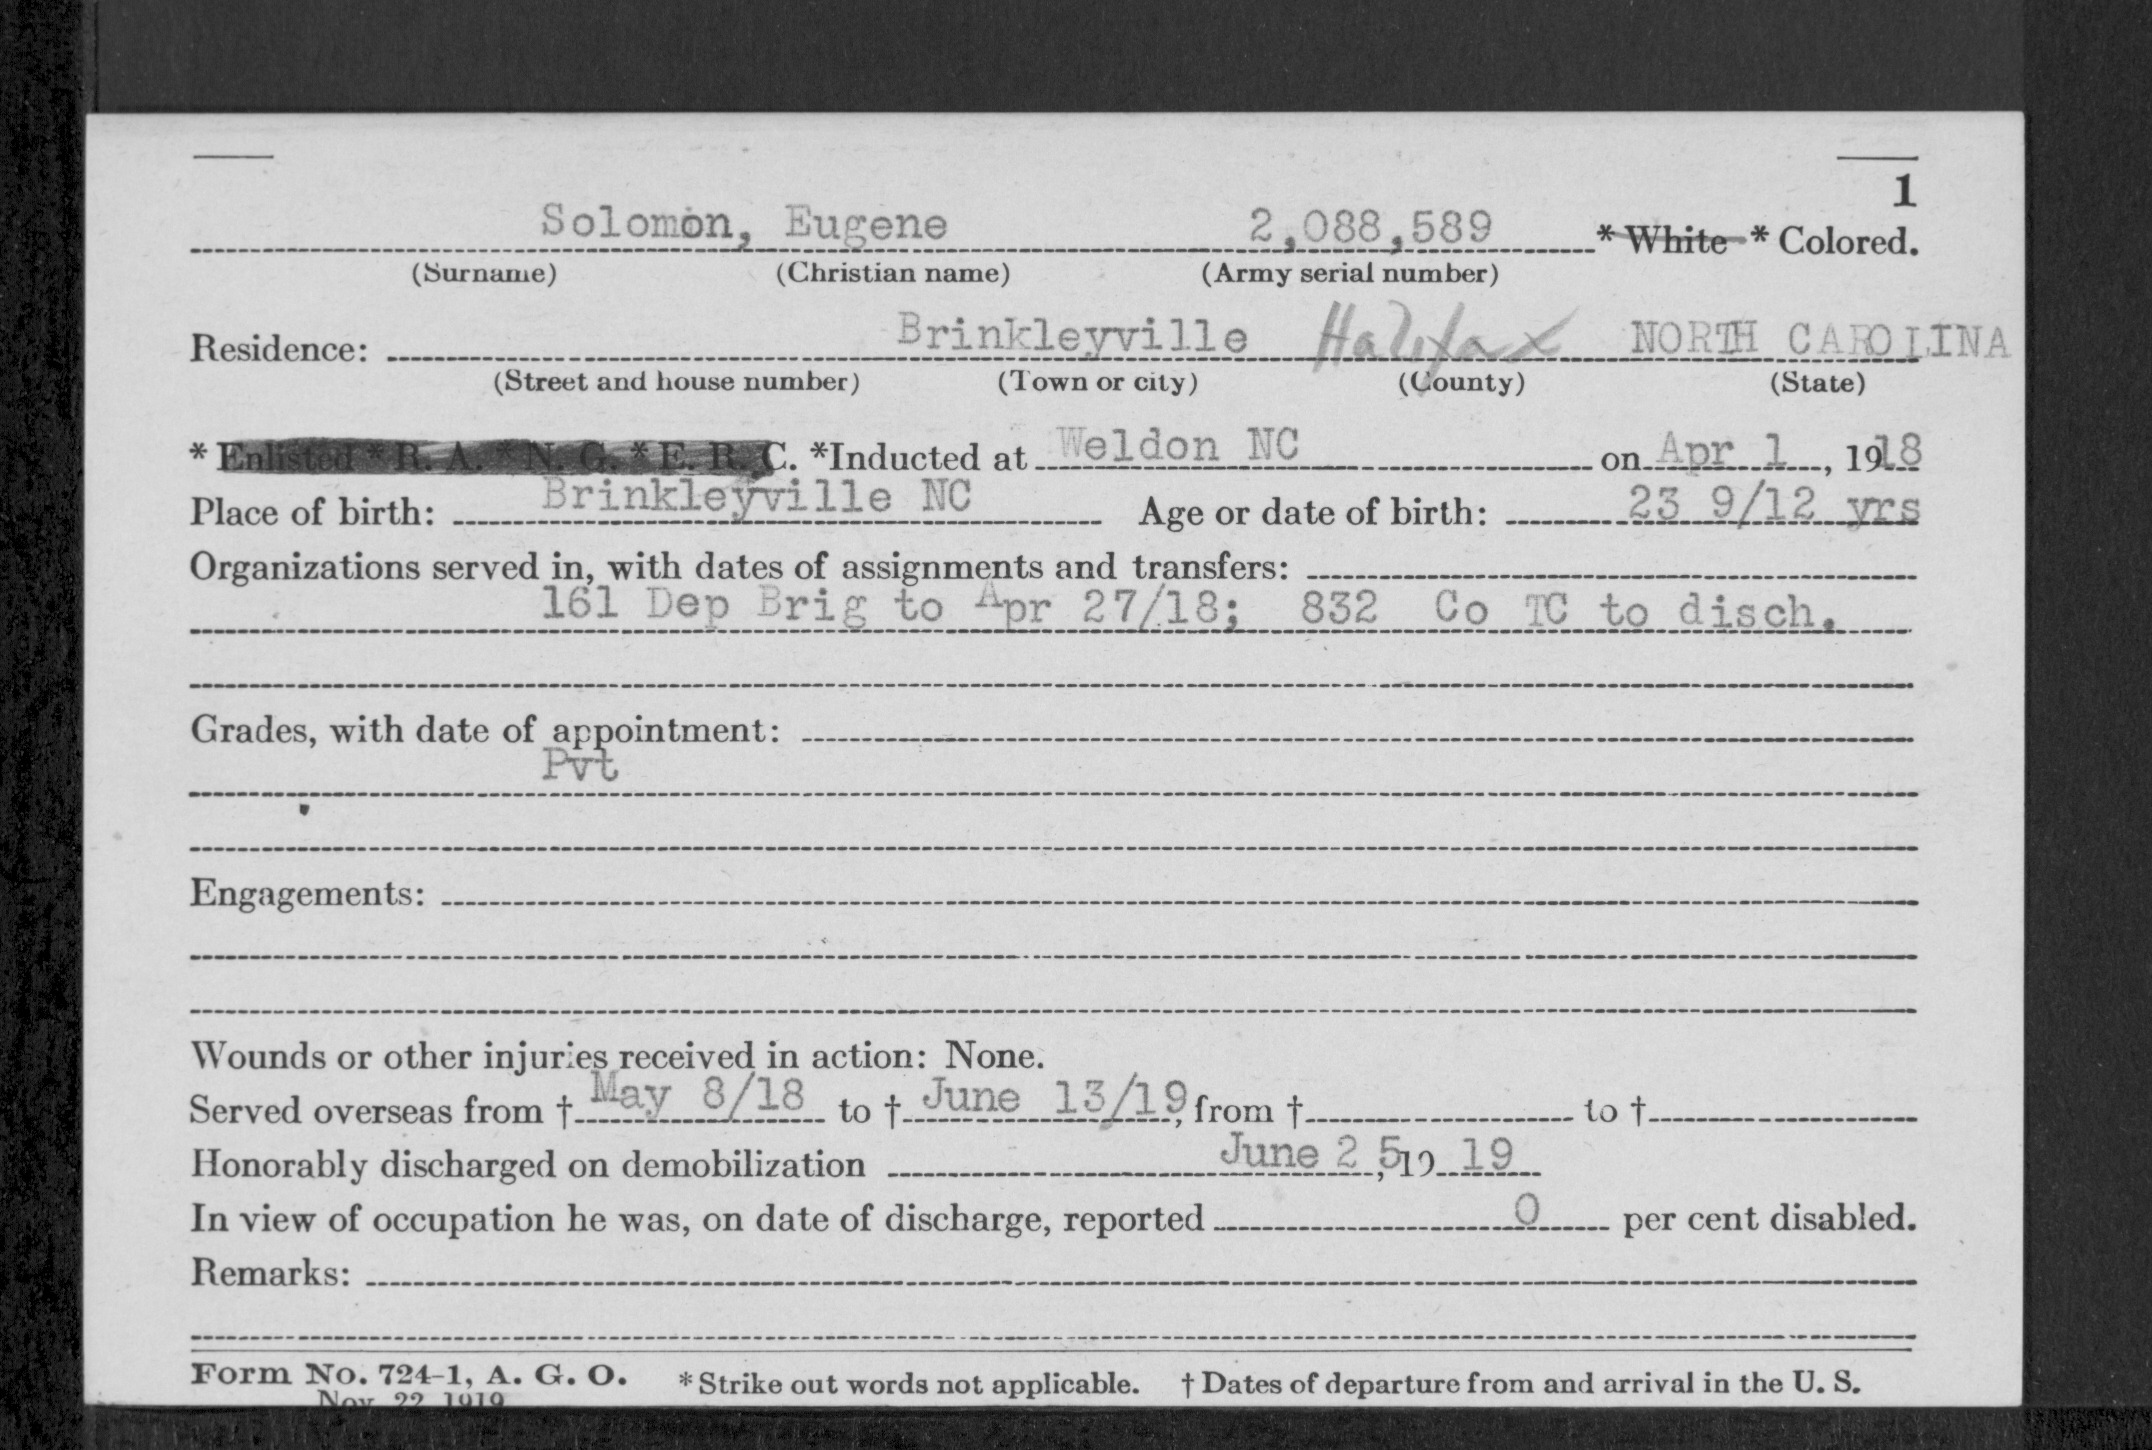 1
Solomon, Eugene 2,088,589 * White * Colored.
(Surname) (Christian name) (Army serial number)
Residence: Brinkleyville Halifax NORTH CAROLINA
(Street and house number) (Town or city) (County) (State)
* Enlisted * R. A. * N. G. * E. R. C. *Inducted at Weldon NC on Apr 1, 1918
Place of birth: Brinkleyville NC Age or date of birth: 23 9/12 yrs
Organizations served in, with dates of assignments and transfers:
161 Dep Brig to Apr 27/18; 832 Co TC to disch.
Grades, with date of appointment:
Pvt
Engagements:
Wounds or other injuries received in action: None.
Served overseas from † May 8/18 to † June 13/19, from † to †
Honorably discharged on demobilization June 25, 19 19
In view of occupation he was, on date of discharge, reported 0 per cent disabled.
Remarks:
Form No. 724-1, A. G. O. * Strike out words not applicable. † Dates of departure from and arrival in the U. S.
Nov 22 1919